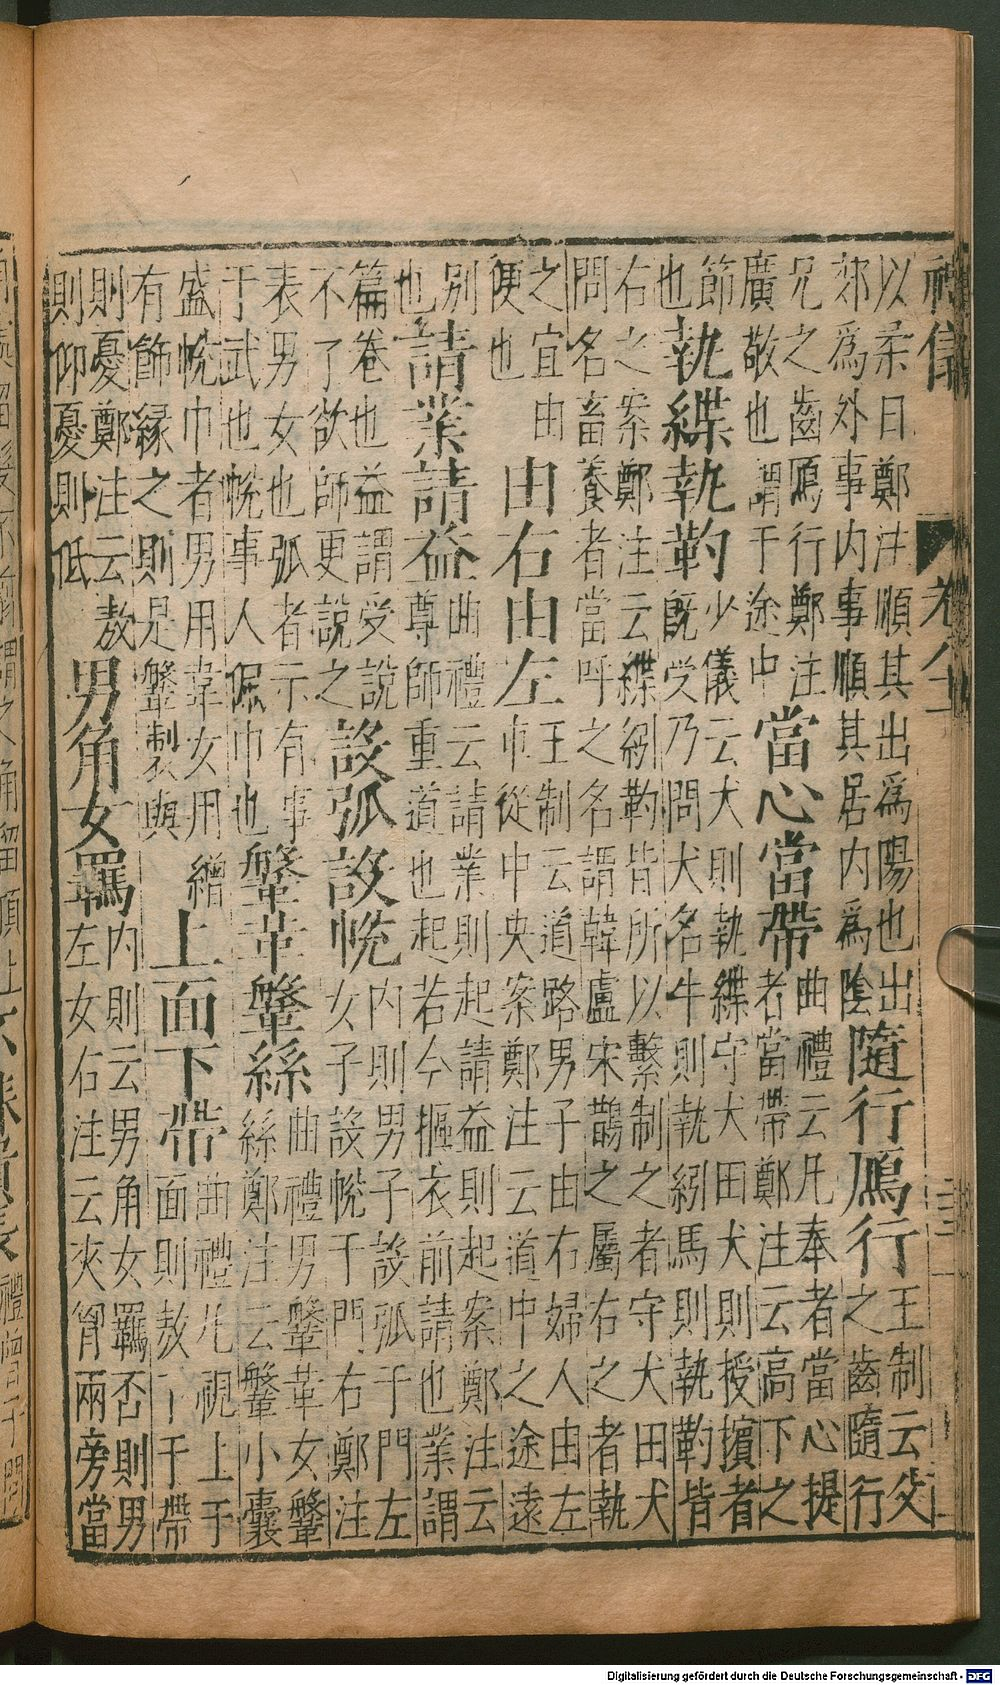 以柔日鄭注順其出為陽也出
郊為外事內事順其居內為陰
隨行鴈行
王制云父
之齒隨行
兄之齒鴈行鄭注
廣敬也謂于途中
當心當帶
曲禮云凡奉者當心提
者當帶鄭注云高下之
節
也
執緤執靮
少儀云犬則執緤守犬田犬則授擯者
既受乃問犬名牛則執紖馬則執靮皆
右之案鄭注云緤紖靮皆所以繫制之者守犬田犬
問名畜養者當呼之名謂韓盧宋鵲之屬右之者執
之宜由
便也
由右由左
王制云道路男子由右婦人由左
車從中央案鄭注云道中之途遠
別
也
請業請益
曲禮云請業則起請益則起案鄭注云
尊師重道也起若今摳衣前請也業謂
篇卷也益謂受說
不了欲師更說之
設弧設帨
內則男子設弧于門左
女子設帨于門右鄭注
表男女也弧者示有事
于武也帨事人佩巾也
鞶革鞶絲
曲禮男鞶革女鞶
絲鄭注云鞶小囊
盛帨巾者男用韋女用繒
有飾緣之則是鞶製與
上面下帶
曲禮凡視上于
面則敖下于帶
則憂鄭注云敖
則仰憂則低
男角女羈
內則云男角女羈否則男
左女右注云夾囟兩旁當
Digitalisierung gefördert durch die Deutsche Forschungsgemeinschaft - DFG